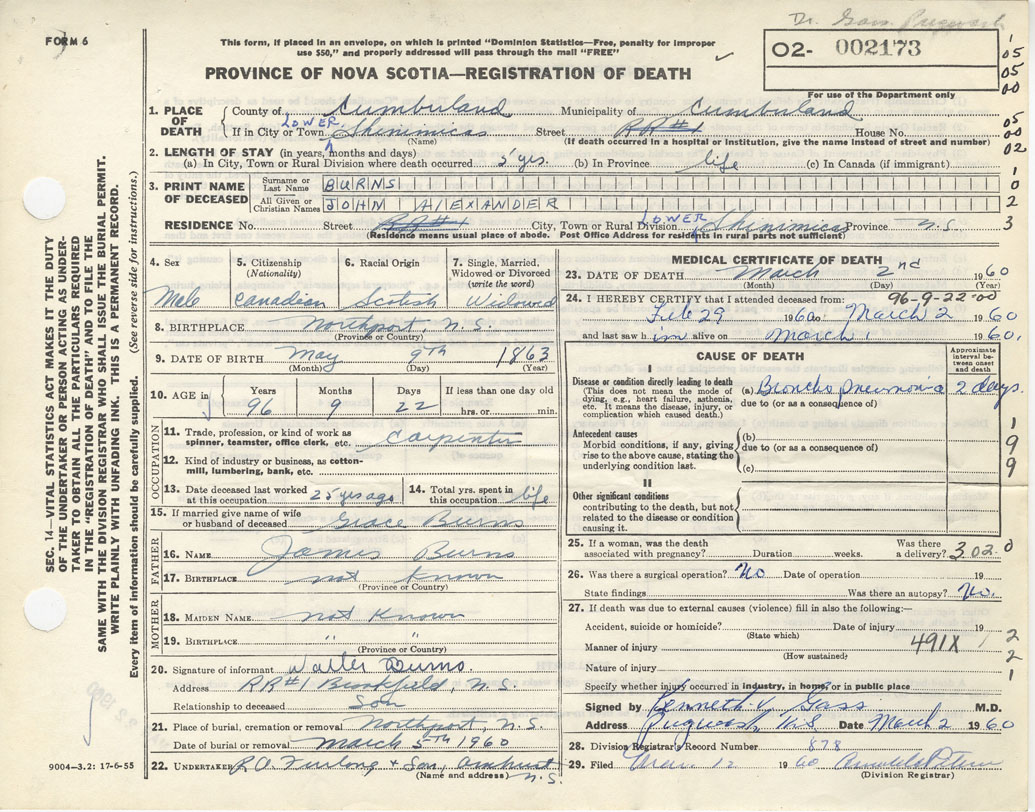 Dr. Gass. Pugwash
FORM 6
This form, if placed in an envelope, on which is printed "Dominion Statistics—Free, penalty for improper
use $50," and properly addressed will pass through the mail "FREE"
O2- 002173
For use of the Department only
PROVINCE OF NOVA SCOTIA—REGISTRATION OF DEATH
1
05
05
00
05
00
02
1
0
2
3
1. PLACE OF DEATH
County of Cumberland Municipality of Cumberland
If in City or Town LOWER Shinimicas Street RR#1 House No.
(Name) (If death occurred in a hospital or Institution, give the name instead of street and number)
2. LENGTH OF STAY (in years, months and days)
(a) In City, Town or Rural Division where death occurred 5 yrs. (b) In Province life (c) In Canada (if immigrant)
3. PRINT NAME OF DECEASED
Surname or Last Name BURNS
All Given or Christian Names JOHN AlEXANDER
RESIDENCE No. Street RR#1 City, Town or Rural Division LOWER Shinimicas Province N.S.
(Residence means usual place of abode. Post Office Address for residents in rural parts not sufficient)
4. Sex
Male
5. Citizenship
(Nationality)
Canadian
6. Racial Origin
Scotish
7. Single, Married,
Widowed or Divorced
(write the word)
Widowed
8. BIRTHPLACE Northport, N.S.
(Province or Country)
9. DATE OF BIRTH May 9TH 1863
(Month) (Day) (Year)
10. AGE in
Years 96
Months 9
Days 22
If less than one day old
hrs. or min.
OCCUPATION
11. Trade, profession, or kind of work as
spinner, teamster, office clerk, etc. Carpenter
12. Kind of industry or business, as cotton-
mill, lumbering, bank, etc.
13. Date deceased last worked
at this occupation 25 yrs ago
14. Total yrs. spent in
this occupation life
15. If married give name of wife
or husband of deceased Grace Burns
FATHER
16. NAME James Burns
17. BIRTHPLACE not known
(Province or Country)
MOTHER
18. MAIDEN NAME not known
19. BIRTHPLACE " "
(Province or Country)
20. Signature of informant Walter Burns
Address RR#1 Brookfield, N.S.
Relationship to deceased Son
21. Place of burial, cremation or removal Northport, N.S.
Date of burial or removal March 5TH 1960
22. UNDERTAKER R.A. Furlong & Son, Amherst
(Name and address) N.S.
MEDICAL CERTIFICATE OF DEATH
23. DATE OF DEATH March 2nd 1960
(Month) (Day) (Year)
96-9-22-00
24. I HEREBY CERTIFY that I attended deceased from:
Feb 29 1960 to March 2 1960
and last saw h im alive on March 1 1960.
CAUSE OF DEATH
Approximate
interval be-
tween onset
and death
I
Disease or condition directly leading to death
(This does not mean the mode of
dying, e.g., heart failure, asthenia,
etc. It means the disease, injury, or
complication which caused death.)
(a) Broncho pneumonia 2 days.
due to (or as a consequence of)
Antecedent causes
Morbid conditions, if any, giving
rise to the above cause, stating the
underlying condition last.
(b)
due to (or as a consequence of)
(c)
1
9
9
II
Other significant conditions
contributing to the death, but not
related to the disease or condition
causing it.
25. If a woman, was the death
associated with pregnancy? Duration weeks. Was there
a delivery? 302.0
26. Was there a surgical operation? No Date of operation 19
State findings Was there an autopsy? No.
27. If death was due to external causes (violence) fill in also the following:—
Accident, suicide or homicide? Date of injury 19
(State which)
Manner of injury 491X
(How sustained)
Nature of injury
2
2
1
Specify whether injury occurred in industry, in home, or in public place
Signed by Kenneth V. Gass M.D.
Address Pugwash, N.S Date March 2 1960
28. Division Registrar's Record Number 878
29. Filed Mar. 12 1960
(Division Registrar)
SEC. 14—VITAL STATISTICS ACT MAKES IT THE DUTY
OF THE UNDERTAKER OR PERSON ACTING AS UNDER-
TAKER TO OBTAIN ALL THE PARTICULARS REQUIRED
IN THE "REGISTRATION OF DEATH" AND TO FILE THE
SAME WITH THE DIVISION REGISTRAR WHO SHALL ISSUE THE BURIAL PERMIT.
WRITE PLAINLY WITH UNFADING INK. THIS IS A PERMANENT RECORD.
Every item of information should be carefully supplied. (See reverse side for instructions.)
9004—3.2: 17-6-55